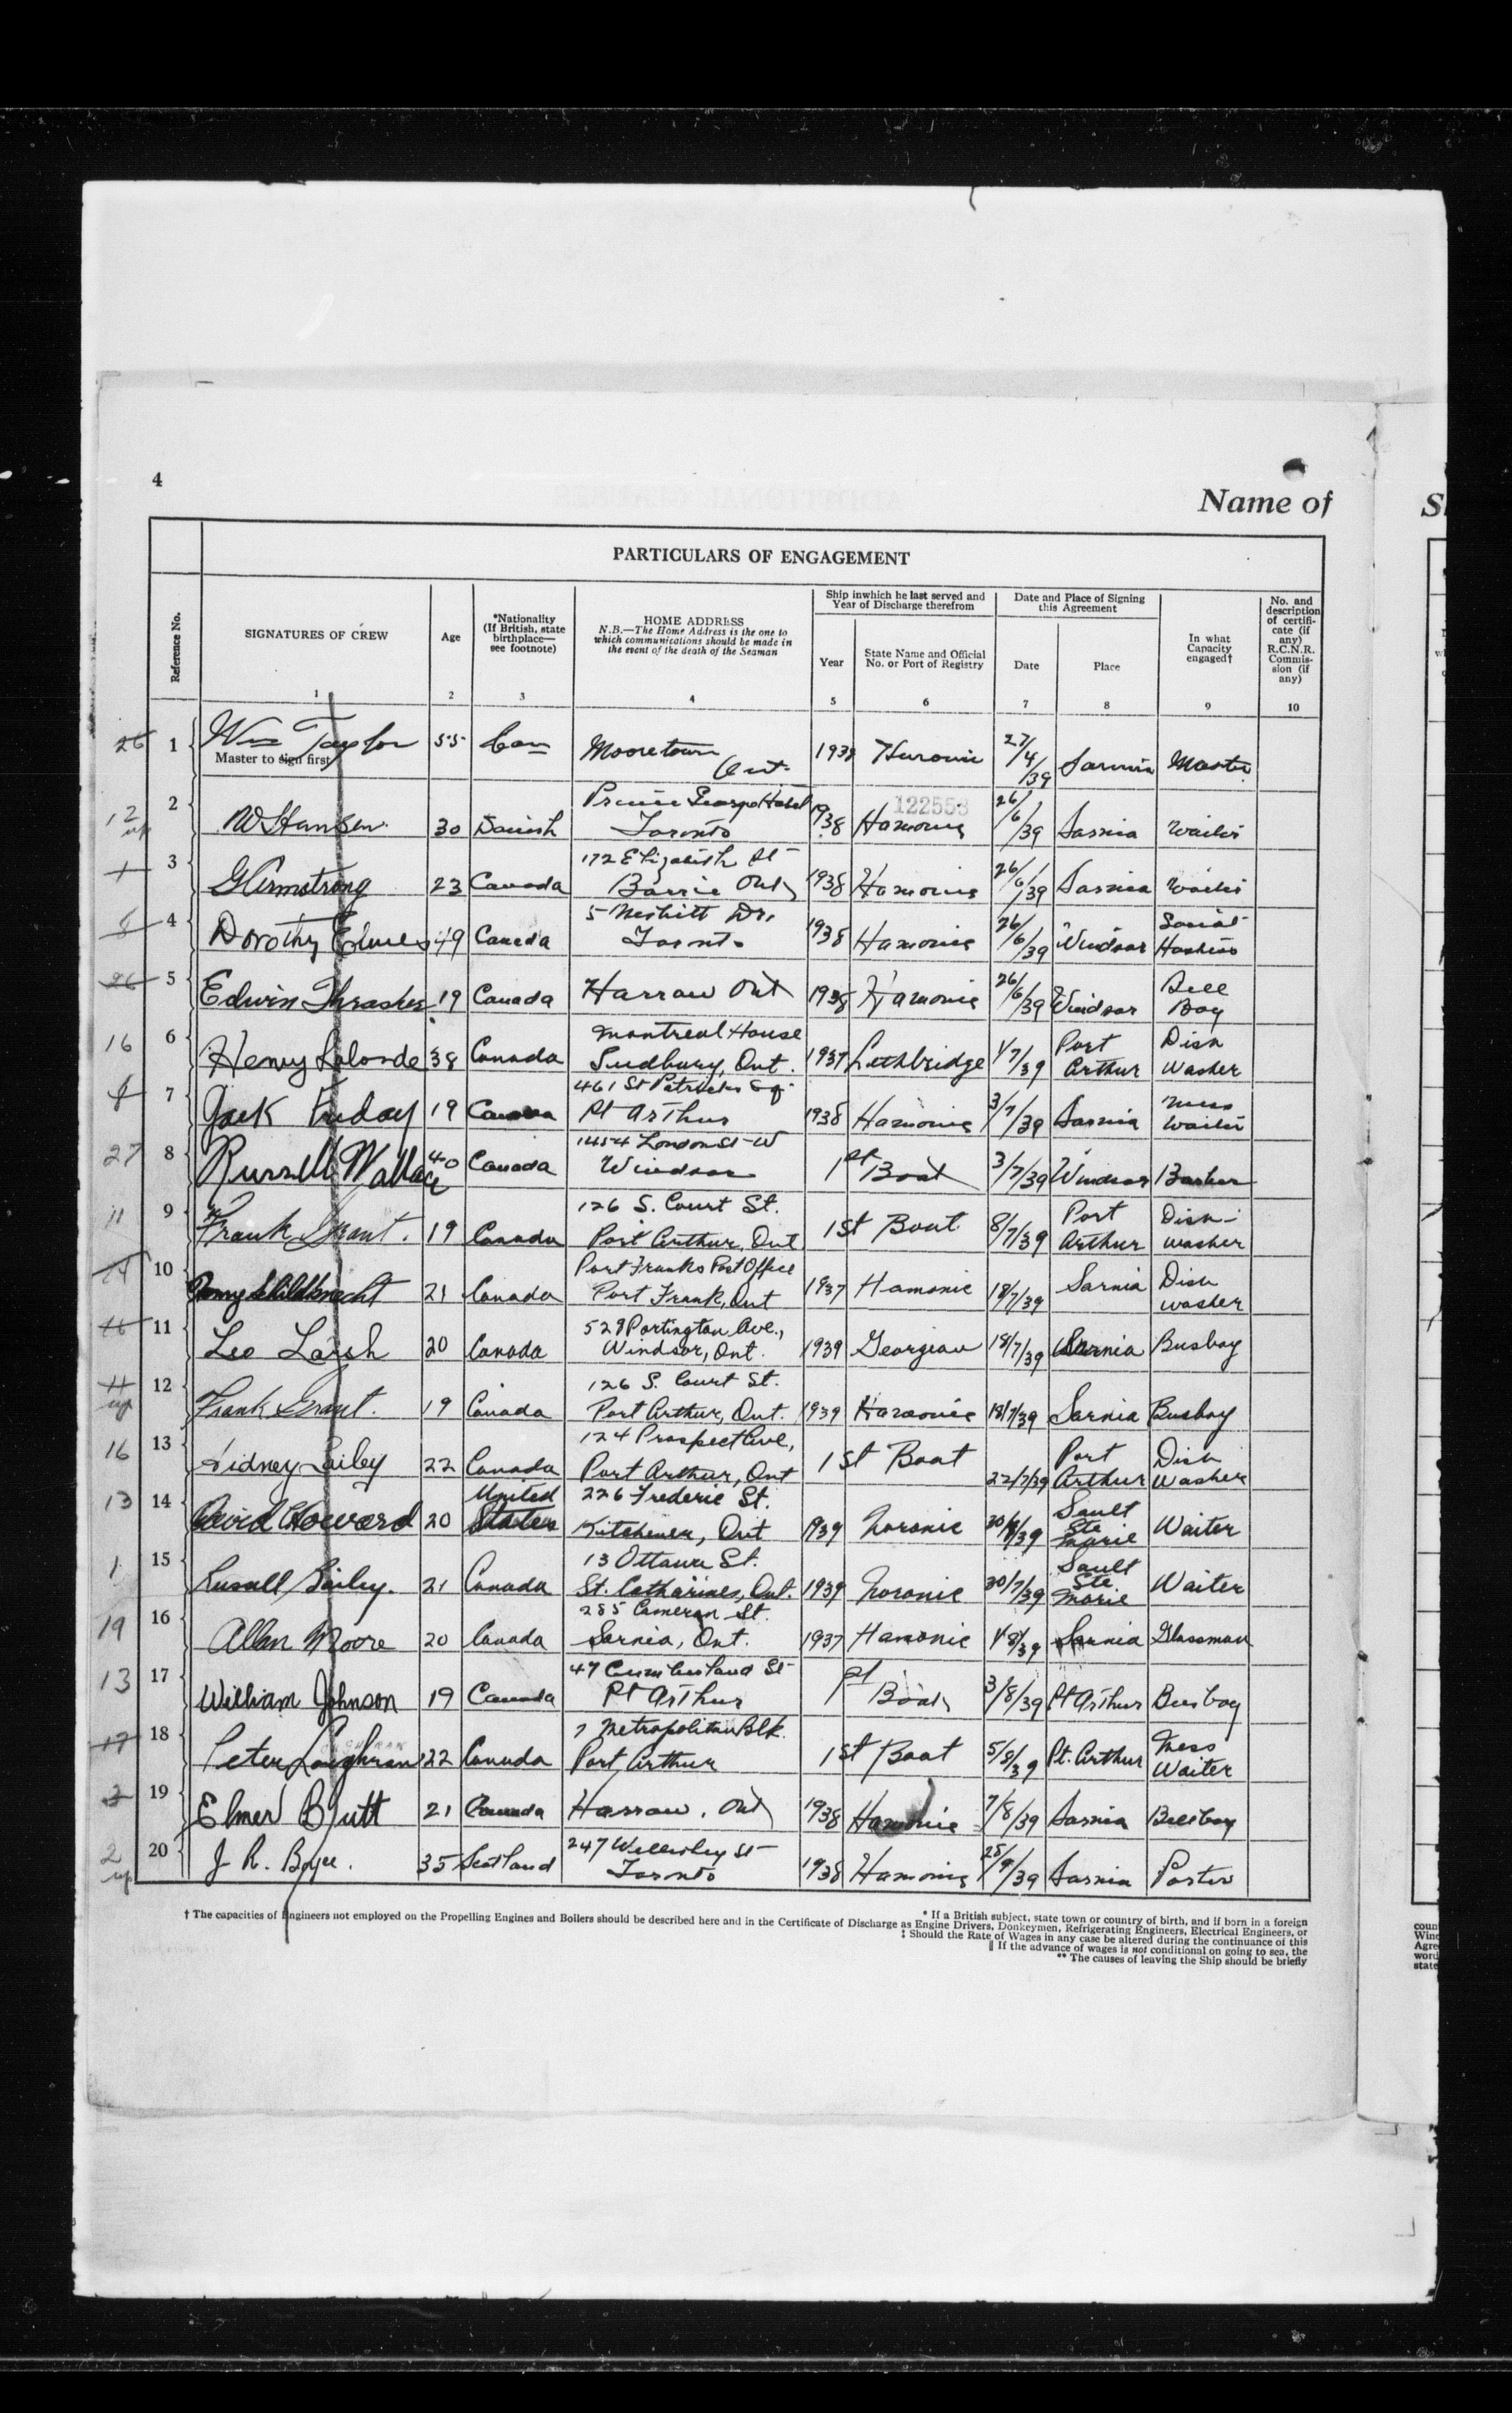 4
Name of
PARTICULARS OF ENGAGEMENT
Reference No.
SIGNATURES OF CREW
Age
*Nationality
(If British, state
birthplace—
see footnote)
HOME ADDRESS
N.B.—The Home Address is the one to
which communications should be made in
the event of the death of the Seaman
Ship inwhich he last served and
Year of Discharge therefrom
Year
State Name and Official
No. or Port of Registry
Date and Place of Signing
this Agreement
Date
Place
In what
Capacity
engaged†
No. and
description
of certifi-
cate (if
any)
R.C.N.R.
Commis-
sion (if
any)
1 2 3 4 5 6 7 8 9 10
26 1 Wm Taylor 55 Can Mooretown Ont 1938 Huronic 27/4/39 Sarnia Master
Master to sign first
12 up 2 W Hansen 30 Danish Prince George Hotel Toronto 1938 Hamonic 122553 26/6/39 Sarnia Waiter
1 3 G Armstrong 23 Canada 172 Elizabeth St Barrie Ont 1938 Hamonic 26/6/39 Sarnia Waiter
8 4 Dorothy 49 Canada 5 Nesbitt Dr. Toronto 1938 Hamonic 26/6/39 Windsor Social Hostess
26 5 Edwin Thrasher 19 Canada Harrow Ont 1938 Hamonic 26/6/39 Windsor Bell Boy
16 6 Henry Lalonde 38 Canada Montreal House Sudbury, Ont. 1937 Lethbridge 1/7/39 Port Arthur Dish Washer
8 7 Jack Friday 19 Canada 461 St Patricks Sq. Pt Arthur 1938 Hamonic 3/7/39 Sarnia Mess Waiter
27 8 Russell Wallace 40 Canada 1454 London St W Windsor 1st Boat 3/7/39 Windsor Barber
11 9 Frank Grant. 19 Canada 126 S. Court St. Port Arthur, Ont 1st Boat 8/7/39 Port Arthur Dish-washer
10 Schildknecht 21 Canada Port Franks Post Office Port Frank, Ont 1937 Hamonic 18/7/39 Sarnia Dish washer
16 11 Leo Larsh 20 Canada 529 Partington Ave., Windsor, Ont. 1939 Georgian 18/7/39 Sarnia Busboy
11 up 12 Frank Grant. 19 Canada 126 S. Court St. Port Arthur, Ont. 1939 Hamonic 18/7/39 Sarnia Busboy
16 13 Sidney Bailey 22 Canada 124 Prospect Ave, Port Arthur, Ont 1st Boat 22/7/39 Port Arthur Dish Washer
13 14 David Howard 20 United States 226 Frederic St. Kitchener, Ont 1939 Noronic 30/7/39 Sault Ste Marie Waiter
1 15 Russell Bailey. 21 Canada 13 Ottawa St. St. Catharines, Ont. 1939 Noronic 30/7/39 Sault Ste. Marie Waiter
19 16 Allan Moore 20 Canada 285 Cameron St. Sarnia, Ont. 1937 Hamonic 1/8/39 Sarnia Glassman
13 17 William Johnson 19 Canada 47 Cumberland St Pt Arthur 1st Boat 3/8/39 Pt Arthur Busboy
17 18 Peter Loughran 22 Canada 7 Metropolitan Blk. Port Arthur 1st Boat 5/8/39 Pt. Arthur Mess Waiter
2 19 Elmer Brutt 21 Canada Harrow, Ont 1938 Hamonic 7/8/39 Sarnia Bellboy
2 up 20 J. R. Boyce. 35 Scotland 247 Wellesley St Toronto 1938 Hamonic Sarnia Porter
* If a British subject, state town or country of birth, and if born in a foreign
† The capacities of Engineers not employed on the Propelling Engines and Boilers should be described here and in the Certificate of Discharge as Engine Drivers, Donkeymen, Refrigerating Engineers, Electrical Engineers, or
‡ Should the Rate of Wages in any case be altered during the continuance of this
‖ If the advance of wages is not conditional on going to sea, the
** The causes of leaving the Ship should be briefly
coun
Wind
Agre
word
state